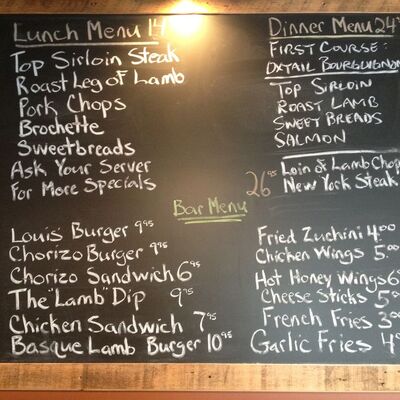 Lunch Menu 14
Top Sirloin Steak
Roast Leg of Lamb
Pork Chops
Brochette
Sweetbreads
Ask Your Server
For More Specials
Dinner Menu 24
First Course:
Oxtail Bourguignon
Top Sirloin
Roast Lamb
Sweet Breads
Salmon
26.95 Loin of Lamb Chop
New York Steak
Bar Menu
Louis' Burger 9.95
Chorizo Burger 9.95
Chorizo Sandwich 6.95
The "Lamb" Dip 9.95
Chicken Sandwich 7.95
Basque Lamb Burger 10.95
Fried Zuchini 4.00
Chicken Wings 5.00
Hot Honey Wings 6
Cheese Sticks 5
French Fries 3.00
Garlic Fries 4